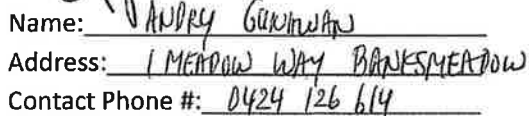 Name: ANDRY GUNINWAN
Address: 1 MEADOW WAY BANKSMEADOW
Contact Phone #: 0424 126 614